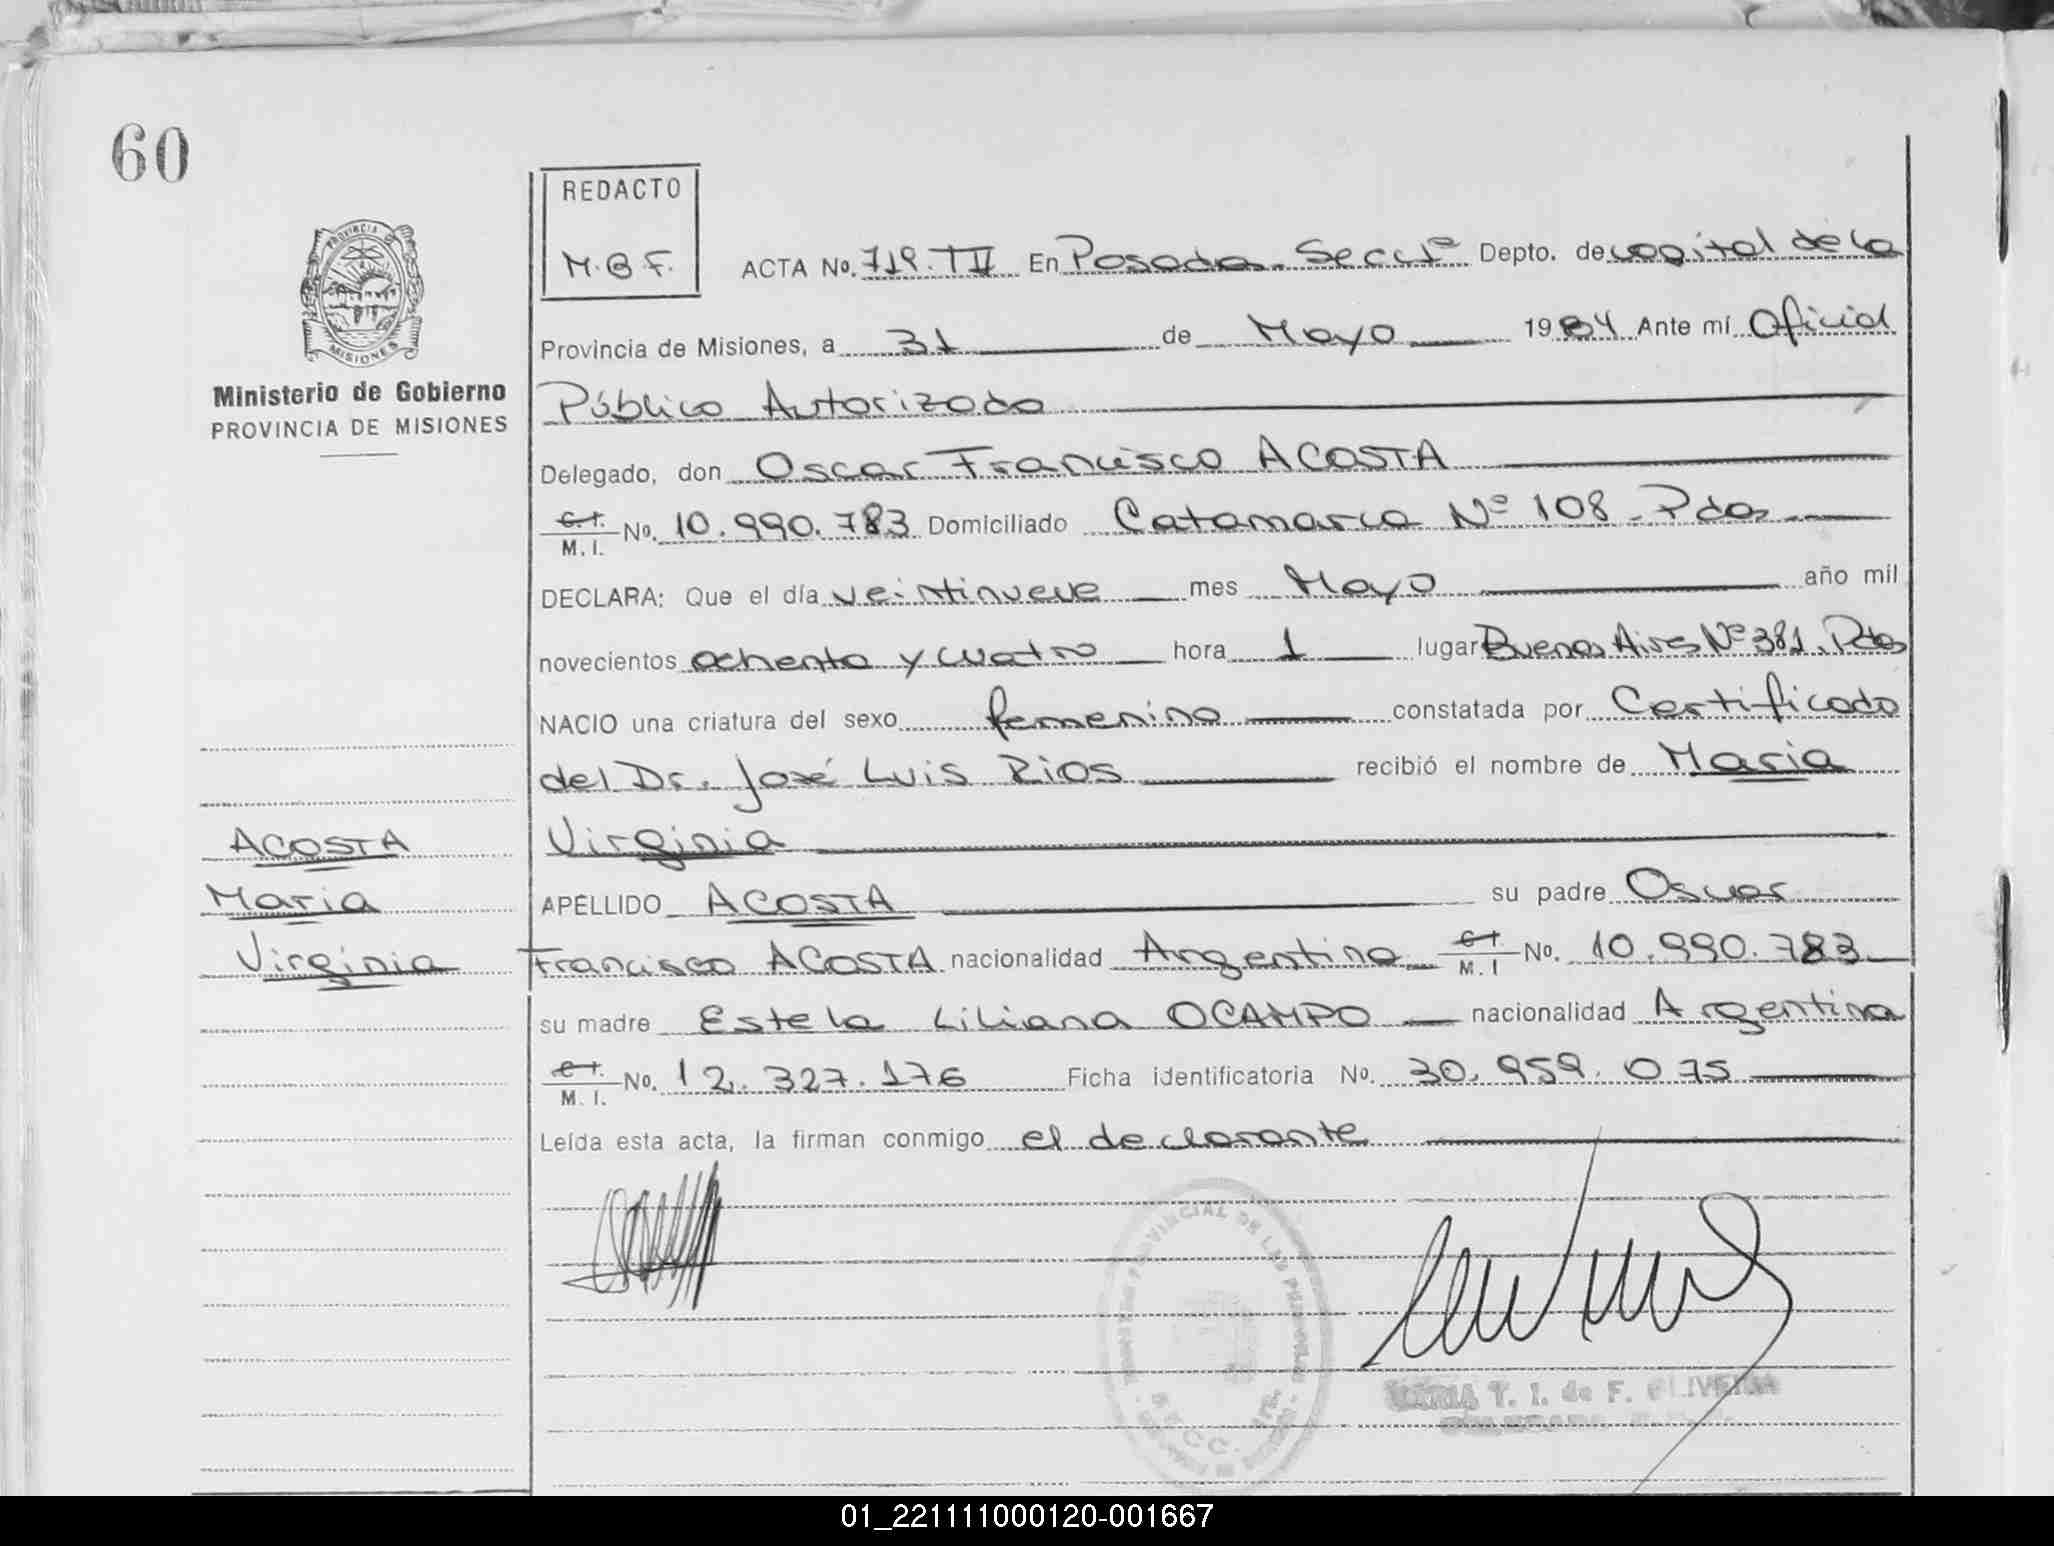 60
PROVINCIA
MISIONES
Ministerio de Gobierno
PROVINCIA DE MISIONES
REDACTO
M.B F.
ACTA No. 719. TII En Posadas. Secc 1ª Depto. de capital de la
Provincia de Misiones, a 31 de Mayo 1984 Ante mí Oficial
Público Autorizado
Delegado, don Oscar Francisco ACOSTA
C.I. M.I. No. 10.990.783 Domiciliado Catamarca Nº 108 - Pdas
DECLARA: Que el día veintinueve mes Mayo año mil
novecientos ochenta y cuatro hora 1 lugar Buenos Aires Nº 381. Pdas
NACIO una criatura del sexo femenino constatada por Certificado
del Dr. José Luis Rios recibió el nombre de Maria
Virginia
APELLIDO ACOSTA su padre Oscar
Francisco ACOSTA nacionalidad Argentina C.I. M.I No. 10.990.783
su madre Estela Liliana OCAMPO nacionalidad Argentina
C.I. M.I. No. 12.327.176 Ficha identificatoria No. 30.959.075
Leída esta acta, la firman conmigo el declarante
ACOSTA
Maria
Virginia
PROVINCIAL DE LAS PERSONAS
SECC. 1ra.
MARIA T. I. de F. OLIVEIRA
01_221111000120-001667